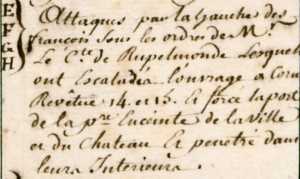 E
F
G
H
Attaques par la Gauche des
francois sous les ordres de Mr.
Le Cte. de Rupelmonde Lesquels
ont Escaladés Louvrage a Corn
Revêtüe 14. et 15. Et forcé la port
de la pre. Enceinte de la Ville
et du Chateau Et penetré dans
leurs Interieurs.